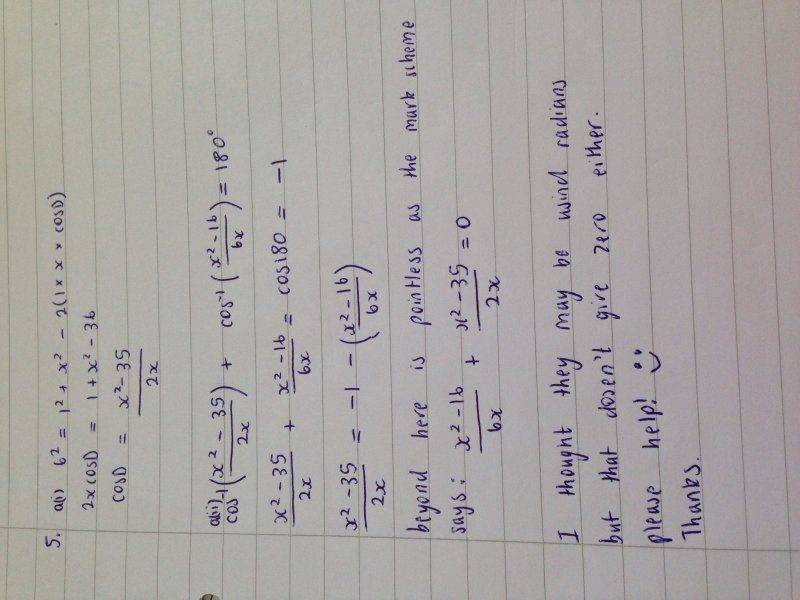 5. a(i) 6² = 1² + x² - 2(1 × x × cosD)
2x cosD = 1 + x² - 36
cosD = x² - 35 / 2x
a(ii) cos⁻¹(x² - 35 / 2x) + cos⁻¹(x² - 16 / 6x) = 180°
x² - 35 / 2x + x² - 16 / 6x = cos180 = -1
x² - 35 / 2x = -1 - (x² - 16 / 6x)
beyond here is pointless as the mark scheme
says: x² - 16 / 6x + x² - 35 / 2x = 0
I thought they may be using radians
but that doesn't give zero either.
please help! :)
Thanks.